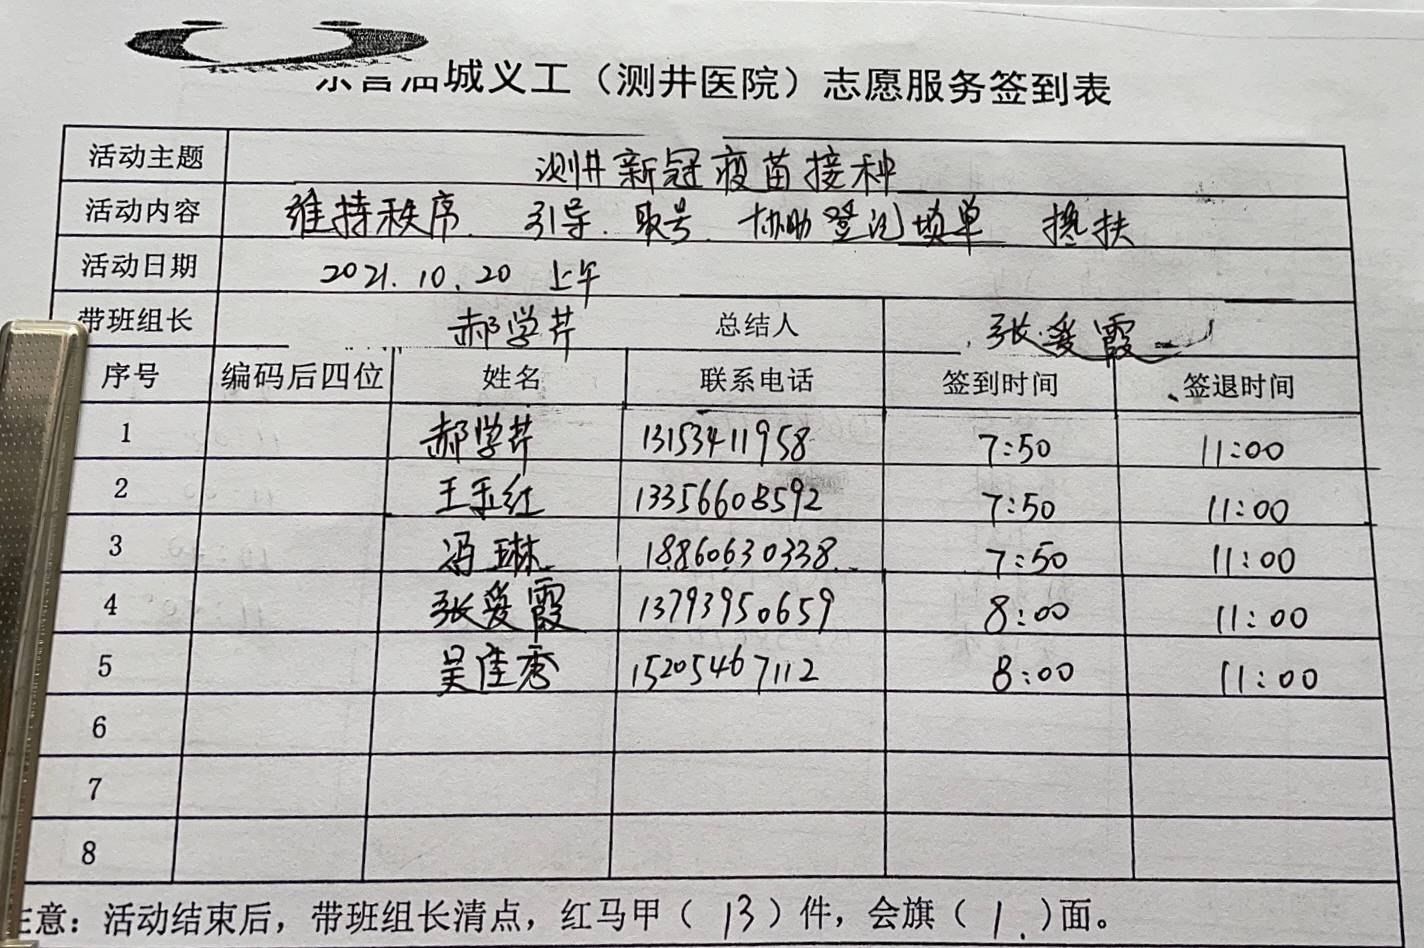 东营油城义工（测井医院）志愿服务签到表
活动主题 测井新冠疫苗接种
活动内容 维持秩序. 引导. 取号. 协助登记填单 搀扶
活动日期 2021.10.20 上午
带班组长 郝学芹 总结人 张爱霞
序号 编码后四位 姓名 联系电话 签到时间 签退时间
1 郝学芹 13153411958 7:50 11:00
2 王玉红 13356608592 7:50 11:00
3 冯琳 18860630338 7:50 11:00
4 张爱霞 13793950659 8:00 11:00
5 吴佳秀 15205467112 8:00 11:00
6
7
8
注意：活动结束后，带班组长清点，红马甲（13）件，会旗（1.）面。